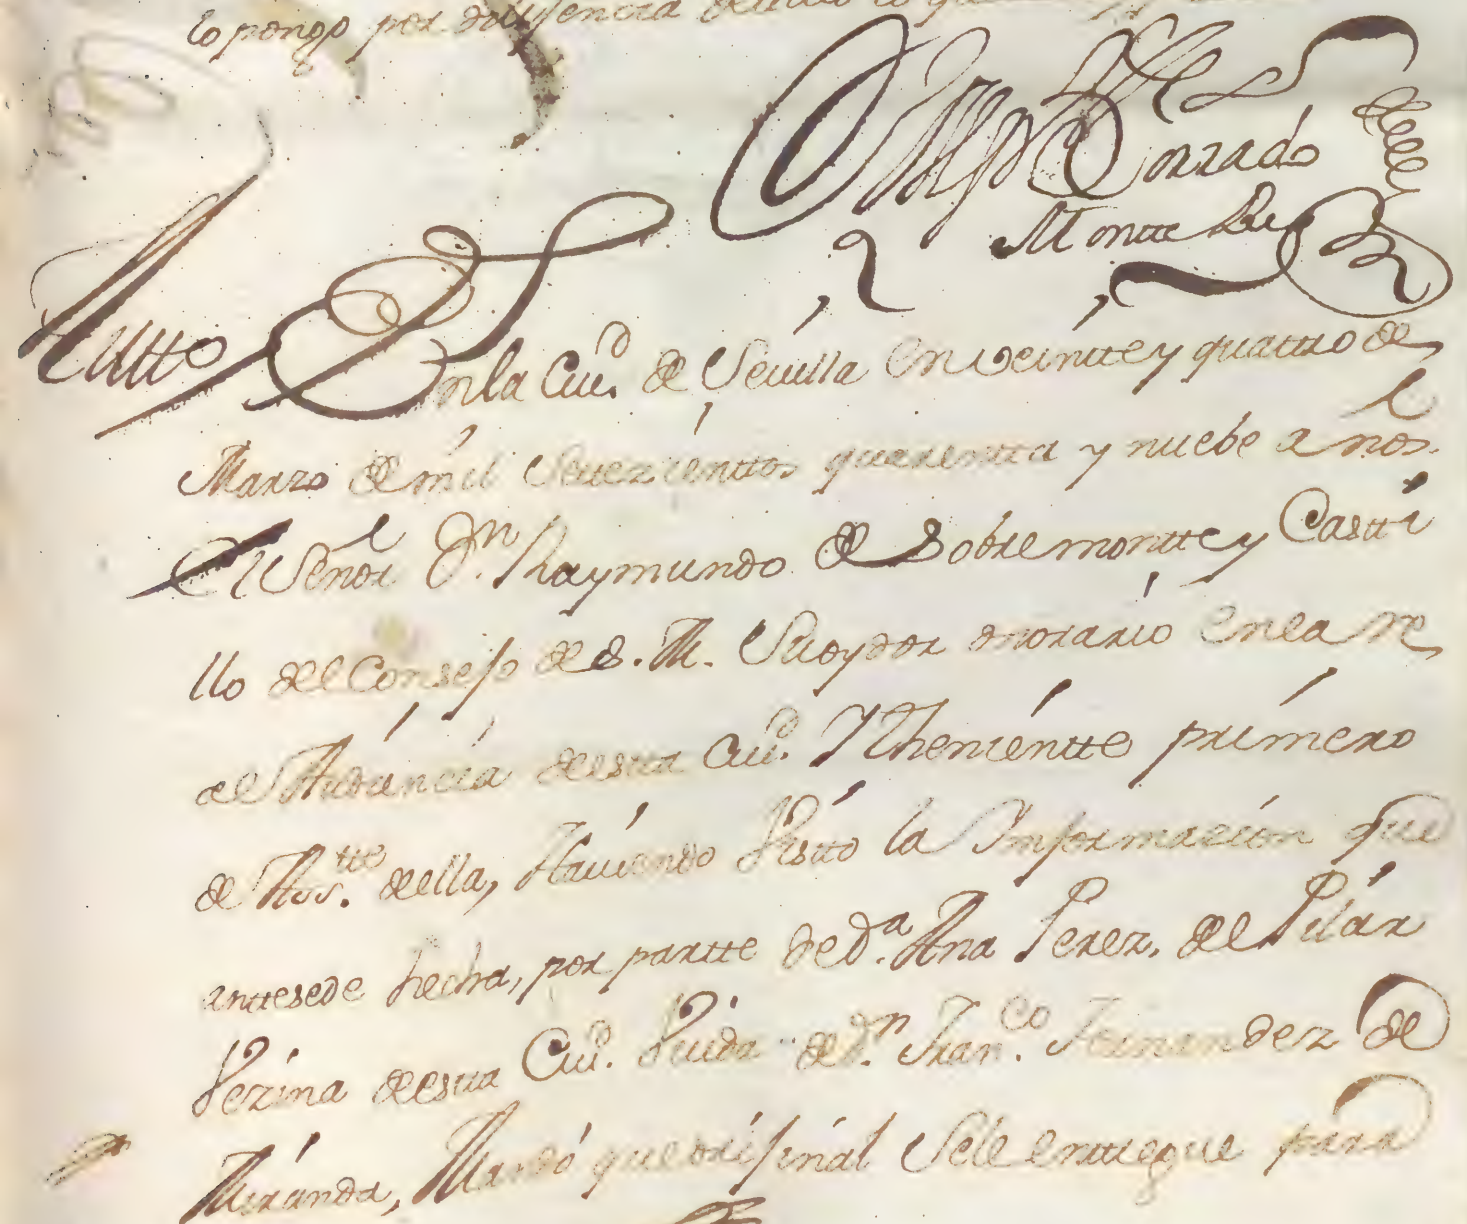 lo pongo por diligencia
Corzado
Montte Rey
Autto En la Ciud. de Sevilla en veintte y quattro de
Marzo de mil Settezienttos quarentta y nuebe años.
El Señor Dn. Raymundo de Sobremontte y Casti
llo del Consejo de S. M. Su oydor onorario en la re
al Audiencia de estta Ciud. Y Theniente primero
de Asstte. della, Haviendo Visto la Informazion que
anttesede hecha, por partte de Da. Ana Perez, del Pilar
Vezina de estta Ciud. Viuda de Dn. Franco. Fernandez de
Miranda, Mandó que orijinal Se le enttregue para